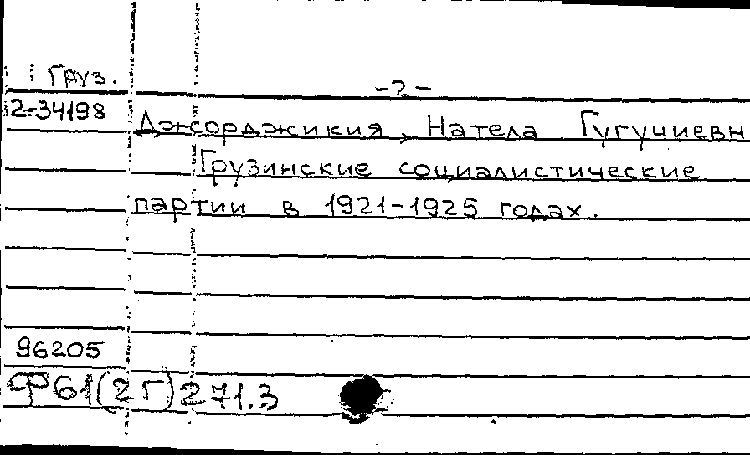 Груз.
-2-
2-34198
Джорджикия, Натела Гугучиевн
Грузинские социалистические
партии в 1921-1925 годах.
96205
Ф61(2Г)271.3